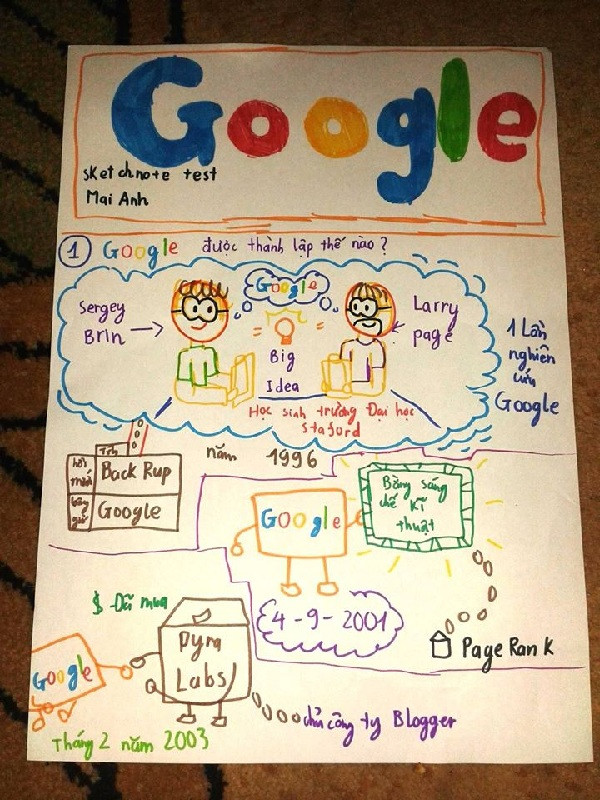 Google
sketchnote test
Mai Anh
1 Google được thành lập thế nào?
Google
Sergey
Brin
Larry
page
Big
Idea
Học sinh trường Đại học
Staford
1 Lần
nghiên
cứu
Google
năm 1996
Tên
hồi
mới
Back Rup
bây
giờ
Google
Google
Bằng sáng
chế kĩ
thuật
4-9-2001
PageRank
$ Đã mua
Google
Pyra
Labs
chủ công ty Blogger
Tháng 2 năm 2003